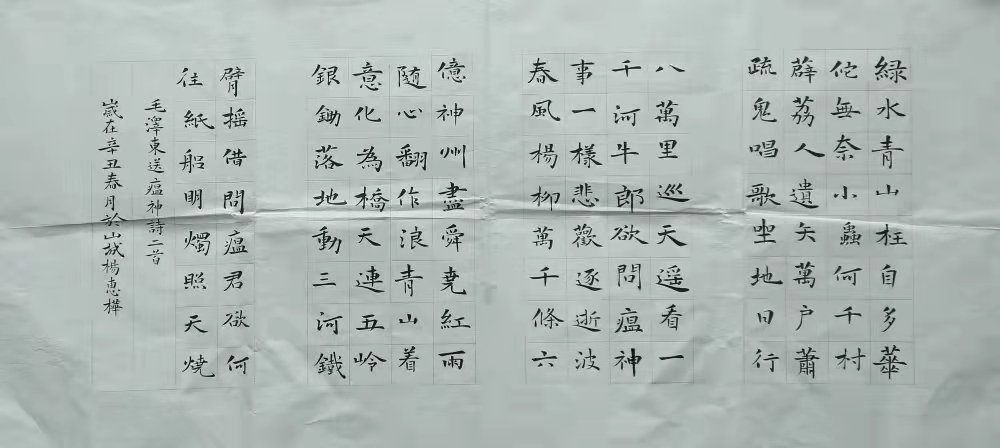 緑水青山枉自多華
佗無奈小蟲何千村
薜荔人遺矢萬户蕭
疏鬼唱歌坐地日行
八萬里巡天遥看一
千河牛郎欲問瘟神
事一樣悲歡逐逝波
春風楊柳萬千條六
億神州盡舜堯紅雨
隨心翻作浪青山着
意化為橋天連五岭
銀鋤落地動三河鐵
臂摇借問瘟君欲何
往紙船明燭照天燒
毛澤東送瘟神詩二首
歲在辛丑春月於山城楊惠樺